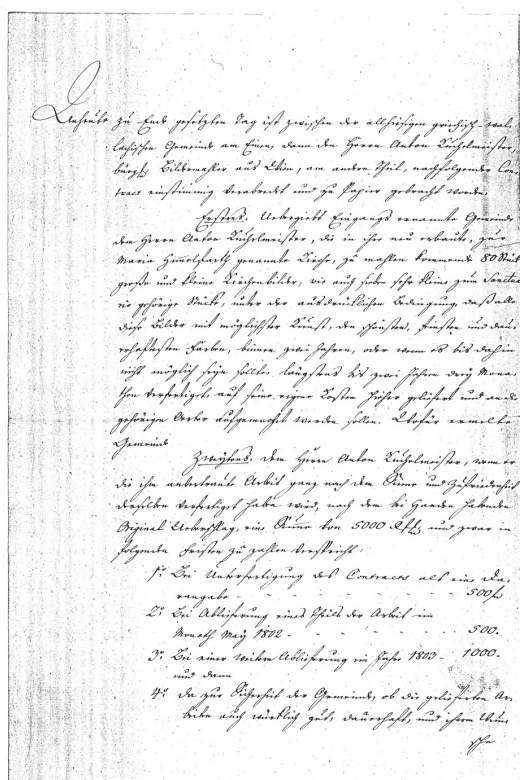 Anheute zu Ende gesetzten Tag ist zwischen der allhiesigen griechisch wal-
lachischen Gemeinde am Einen, dann den Herrn Anton Kuchelmeister,
bürgl. Bildermahler aus Wien, am andern Theil, nachfolgender Con-
tract einstimmig verabredet und zu Papier gebracht worden.
Erstens. Uebergiebt Eingangs ernannte Gemeinde
dem Herrn Anton Kuchelmeister, die in ihre neu erbaute, zur
Maria Himmelfarth genannte Kirche, zu mahlen kommende 80 Stück
große und kleine Kirchenbilder, wie auch sieben sehr kleine zum Sanctua
rio gehörige Stücke, unter der ausdrücklichen Bedingung, daß alle
diese Bilder mit möglichster Kunst, den schönsten, feinsten und dau-
erhaftesten Farben, binnen zwei Jahren, oder wenn es bis dahin
nicht möglich seyn sollte, längstens bis zwei Jahre drey Mona-
then verfertiget, auf seine eigene Kosten hieher geliefert und an die
gehörigen Orte aufgemacht werden sollen. Wofür ermelte
Gemeinde
Zweytens. dem Herrn Anton Kuchelmeister, wenn er
die ihm anvertraute Arbeit ganz nach dem Sinne und Zufriedenheit
derselben verfertiget haben wird, nach dem bei Handen habenden
Original Ueberschlag, eine Summe von 5000 und zwar in
folgenden Fristen zu zahlen verspricht:
1o Bei Unterfertigung des Contracts als eine Da-
rangabe - 500 f
2o Bei Ablieferung eines Theils der Arbeit im
Monath May 1802 - 500.
3o Bei einer weitern Ablieferung im Jahr 1803 - 1000.
und dann
4o Da zur Sicherheit der Gemeinde, ob die gelieferten Ar-
beiten auch würklich gut, dauerhaft, und ihrem Wun
sche